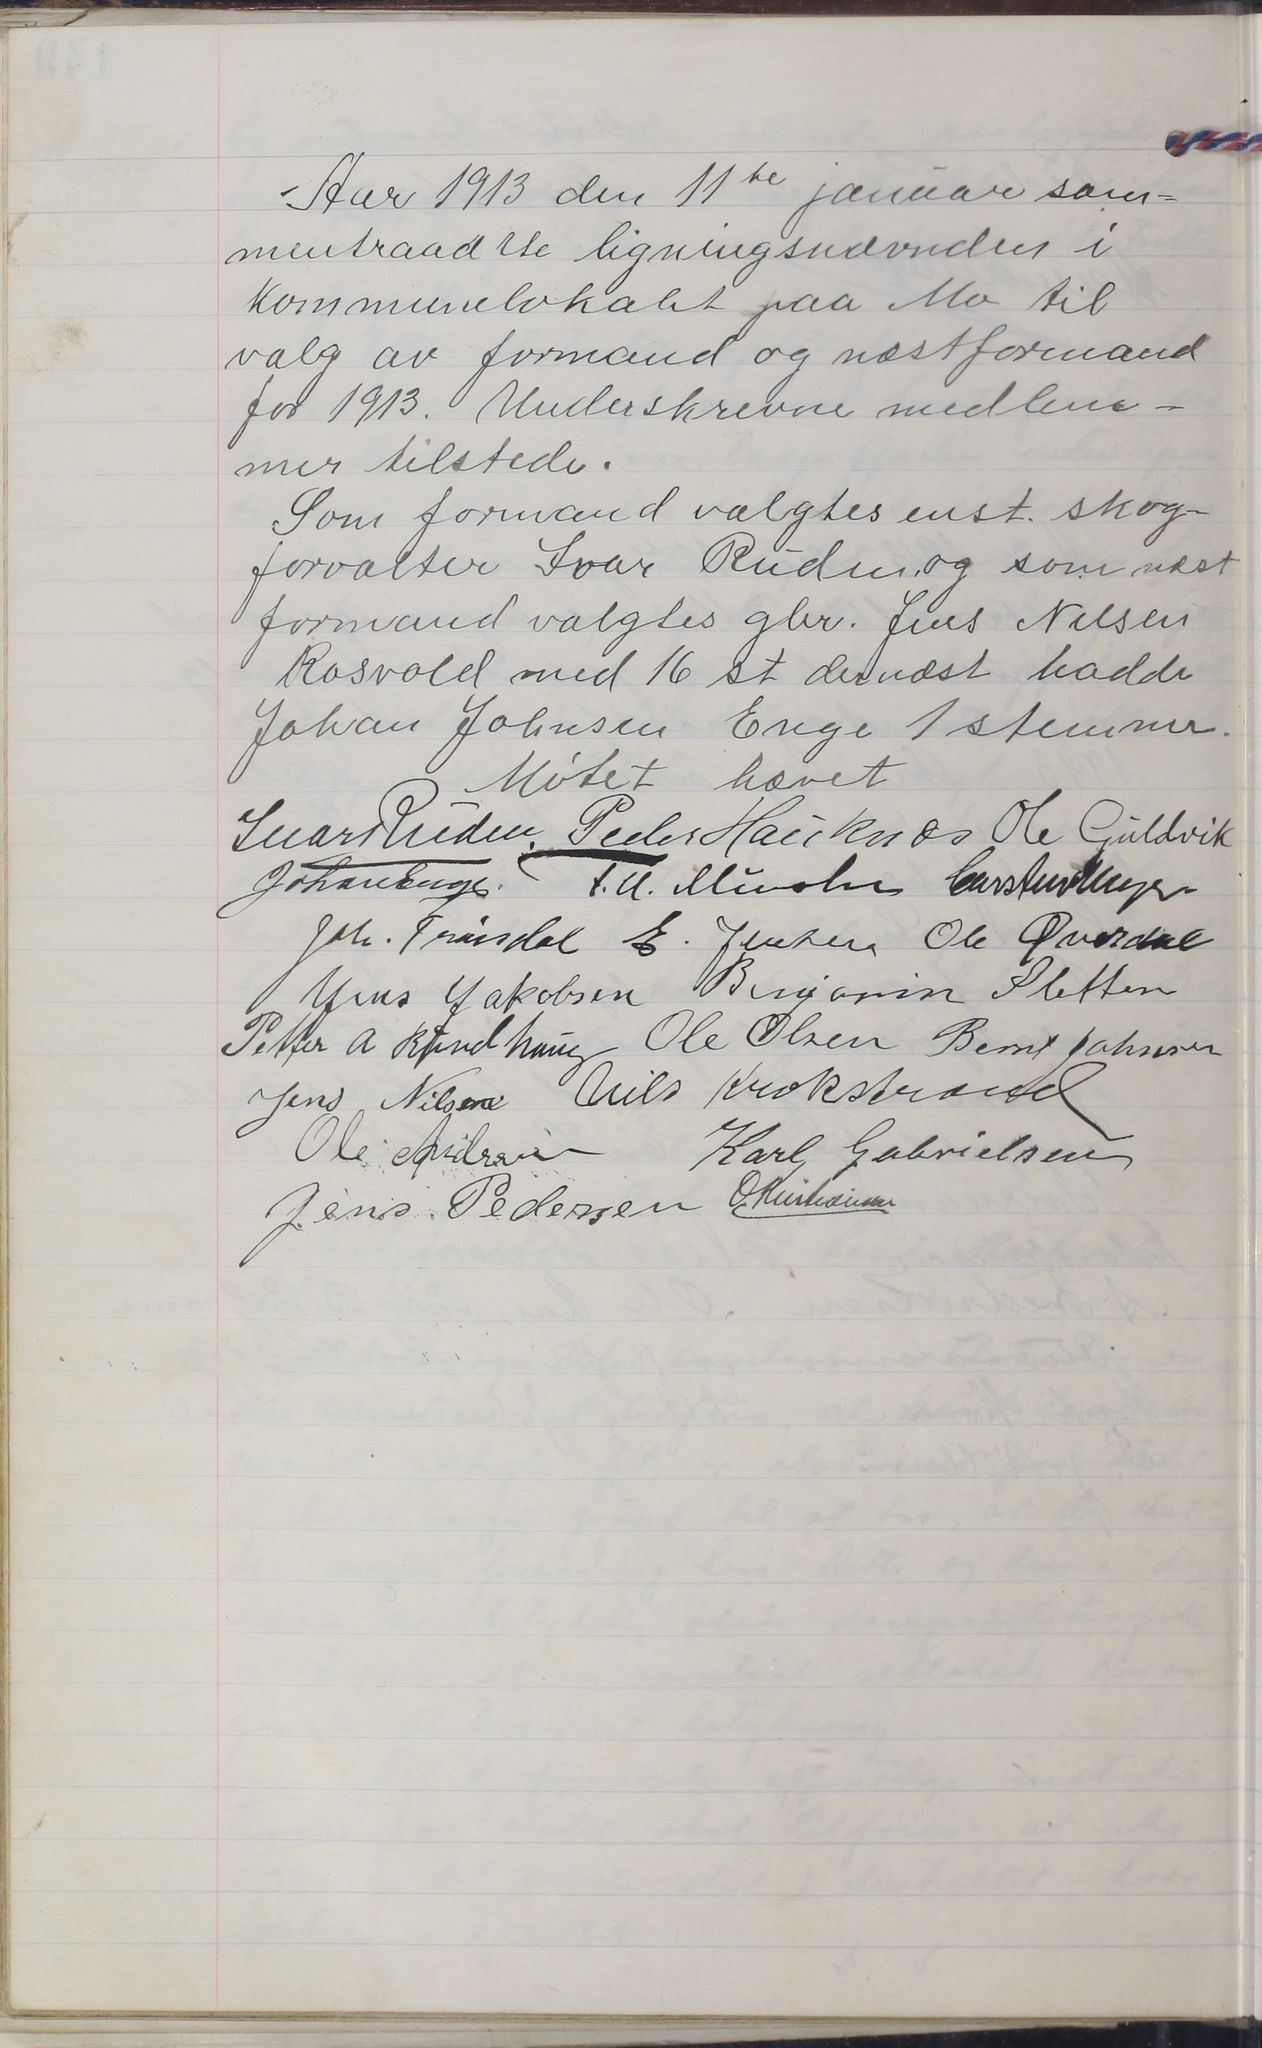 Aar 1913 den 11te januar sam-
mentraadte ligningsnævnden i
kommunelokalet paa Mo til
valg av formand og næstformand
for 1913. Underskrevne medlem-
mer tilstede.
Som formand valgtes enst. skog-
forvalter Ivar Ruden og som næst
formand valgtes gbr. Jens Nilsen
Rosvold med 16 st dernæst hadde
Johan Johnsen Enge 1 stemmer.
Møtet hævet
Ivar Ruden. Peder Hauknæs Ole Guldvik
Johan Enge. Carsten Meyer
Joh. Trånsdal E. Jentsen Ole Øverdal
Jens Jakobsen Benjamin Sletten
Petter A Strandhaug Ole Olsen Bernt Johnsen
Jens Nilsen Nils Krokstrand
Ole Andrsen Karl Gabrielsen
Jens Pedersen